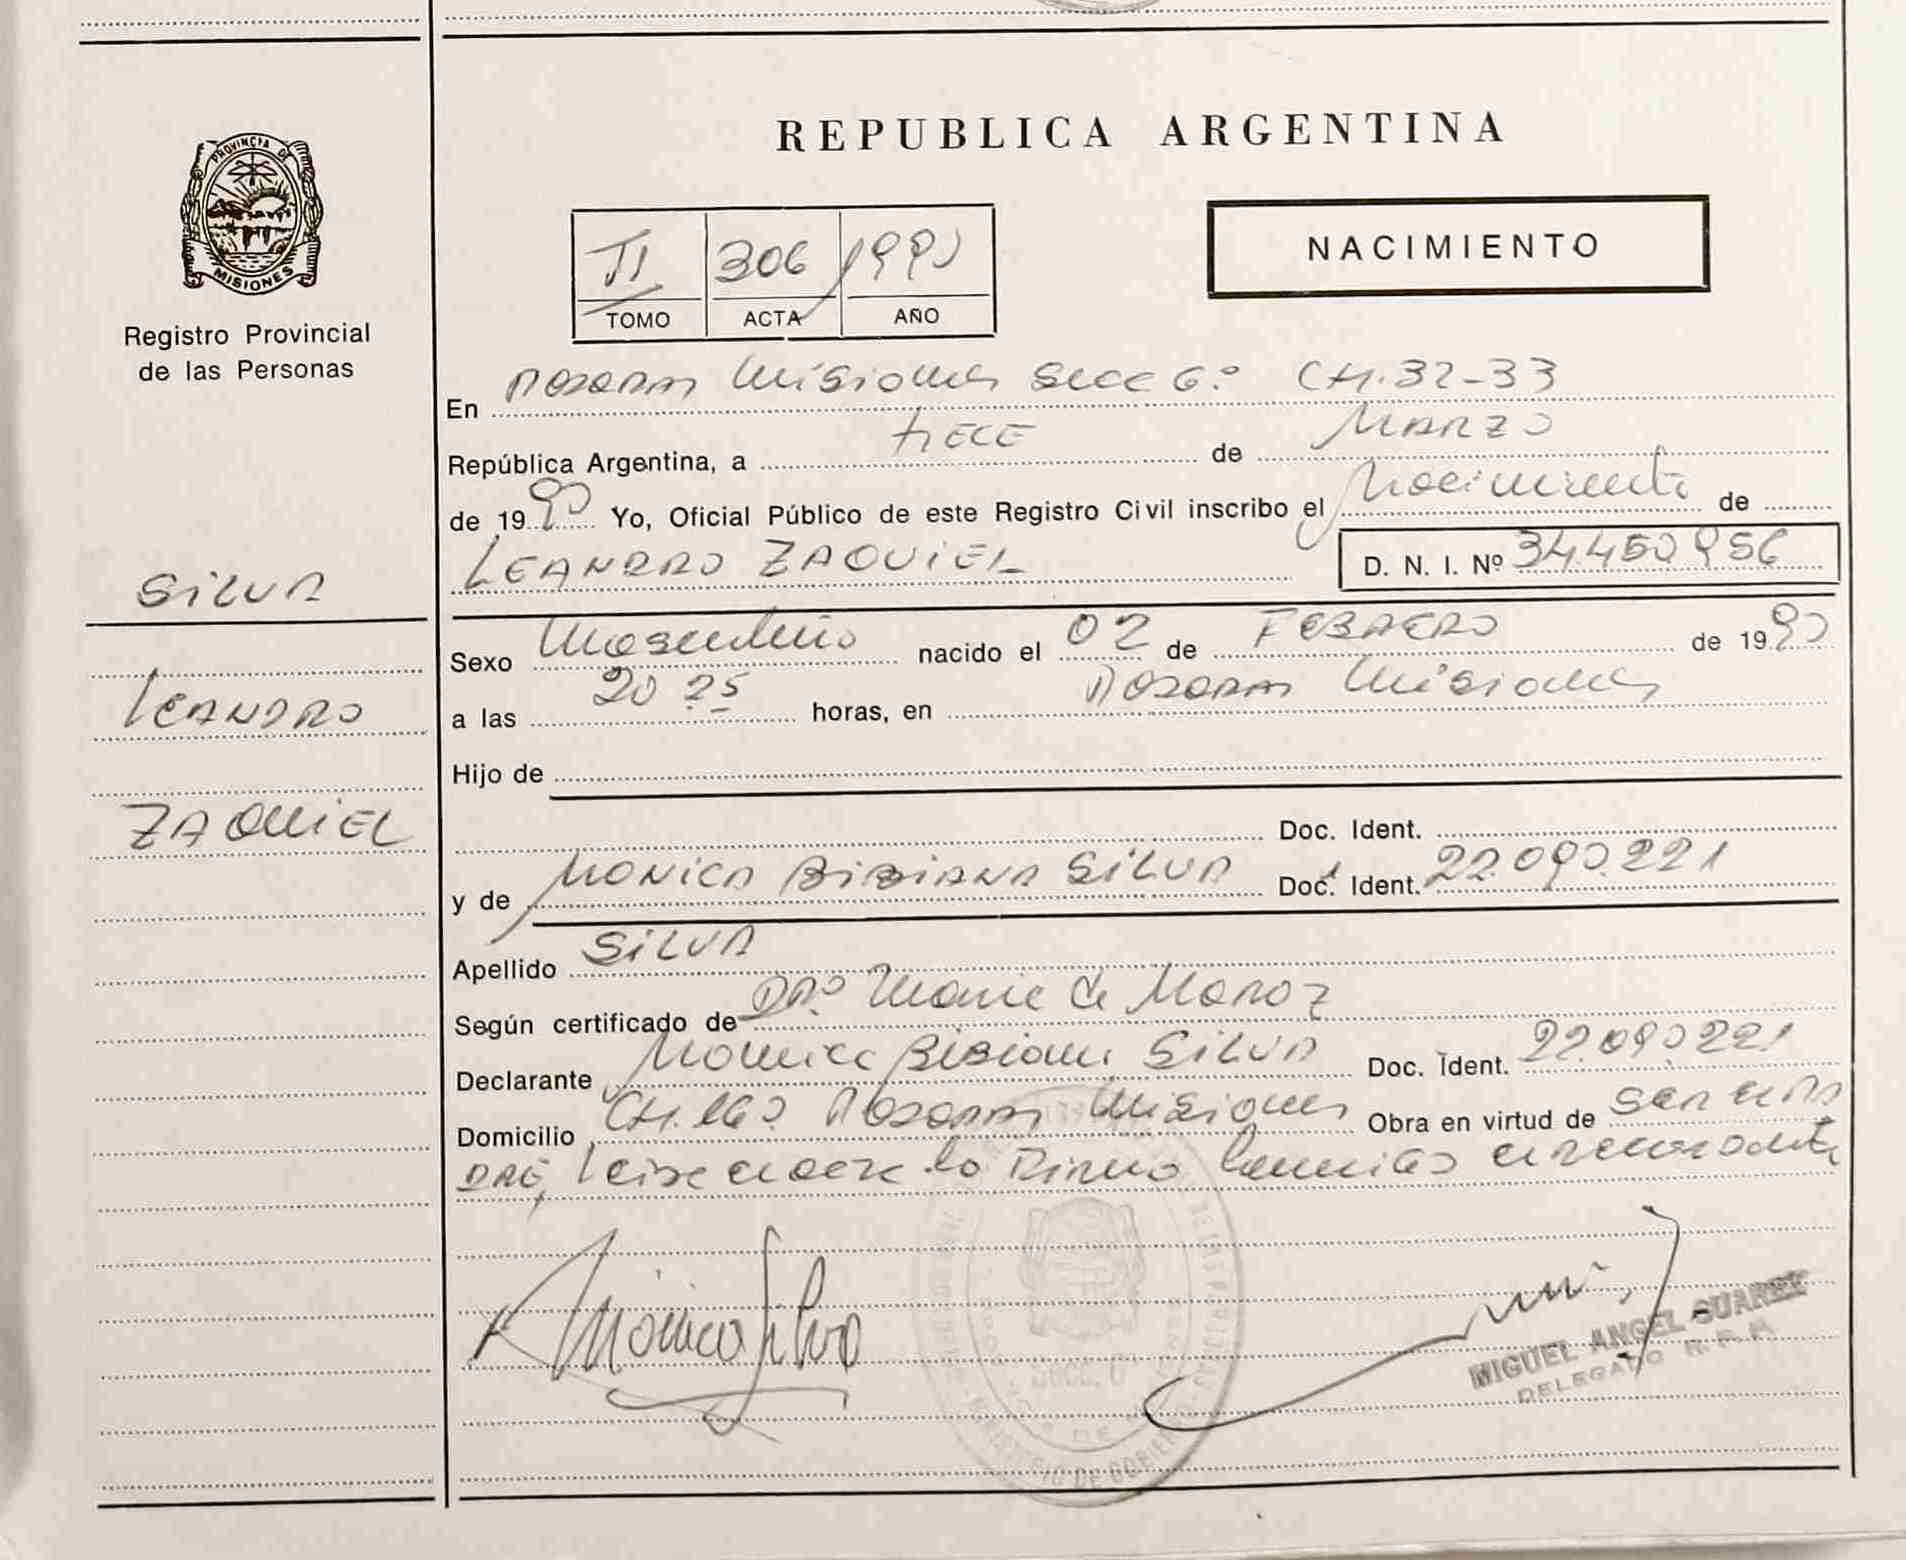 REPUBLICA ARGENTINA
PROVINCIA DE
MISIONES
Registro Provincial
de las Personas
NACIMIENTO
II 306 1990
TOMO ACTA AÑO
En Posadas Misiones Secc 6º CH. 32-33
República Argentina, a trece de MARZO
de 1990 Yo, Oficial Público de este Registro Civil inscribo el Nacimiento de
LEANDRO ZAQUIEL D. N. I. Nº 34.450956
SILVA
LEANDRO
ZAQUIEL
Sexo Masculino nacido el 02 de FEBRERO de 1990
a las 20 25 horas, en Posadas Misiones
Hijo de
Doc. Ident.
y de MONICA BIBIANA SILVA Doc. Ident. 22.090.221
Apellido SILVA
Según certificado de DRA
Declarante Monica Bibiana SILVA Doc. Ident. 22.090221
Domicilio Posadas Misiones Obra en virtud de ser
la Firma
Monica Silva
MIGUEL ANGEL SUAREZ
DELEGADO R.P.
SECC. 6
MINISTERIO DE GOBIERNO